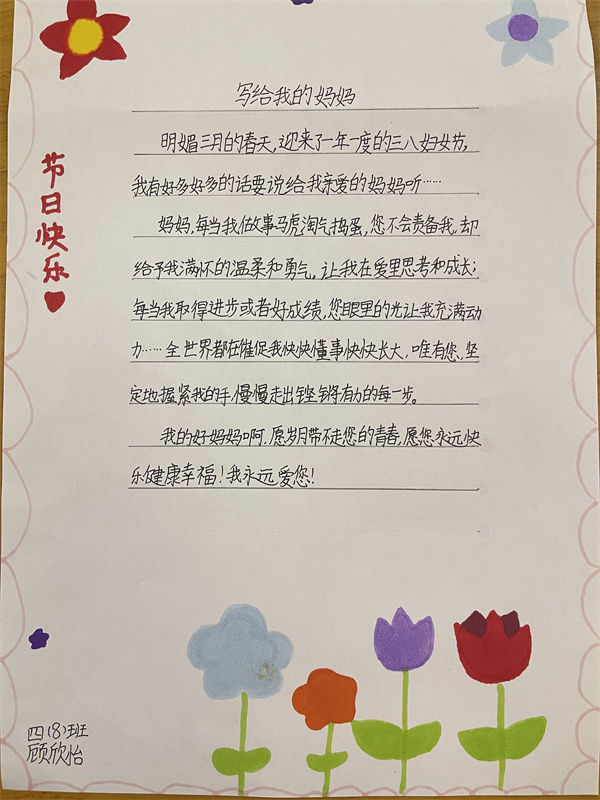 写给我的妈妈
明媚三月的春天，迎来了一年一度的三八妇女节，
我有好多好多的话要说给我亲爱的妈妈听……
妈妈，每当我做事马虎淘气捣蛋，您不会责备我，却
给予我满怀的温柔和勇气，让我在爱里思考和成长；
每当我取得进步或者好成绩，您眼里的光让我充满动
力……全世界都在催促我快快懂事快快长大，唯有您，坚
定地握紧我的手，慢慢走出铿锵有力的每一步。
我的好妈妈啊，愿岁月带不走您的青春，愿您永远快
乐健康幸福！我永远爱您！
节日快乐
四(8)班
顾欣怡